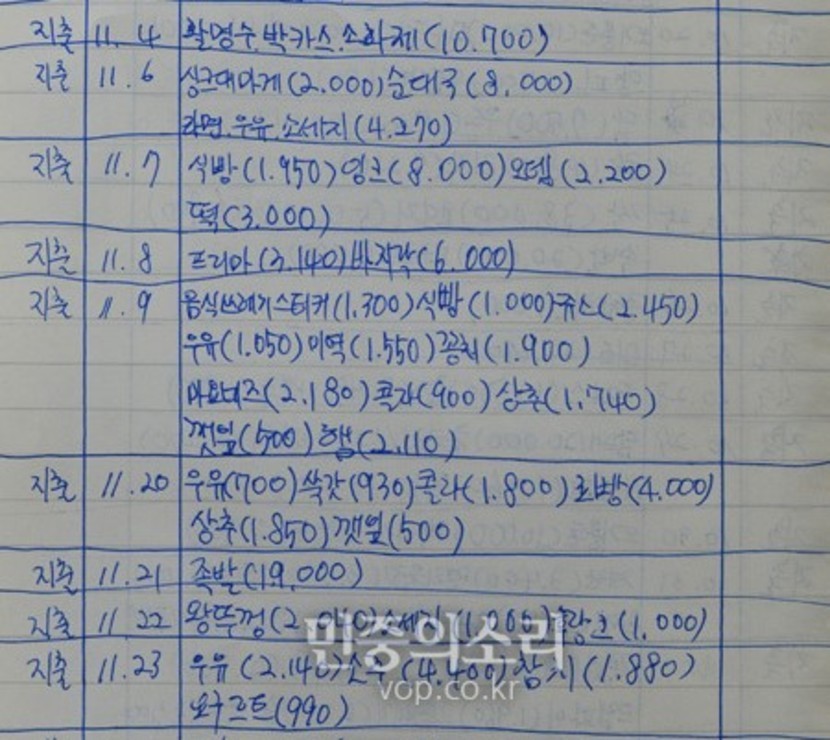 지출 11. 4 활명수.박카스.소화제(10.700)
지출 11. 6 싱크대마게(2.000)순대국(8.000)
라면.우유.소세지(4.270)
지출 11. 7 식빵(1.950)잉크(8.000)오뎅(2.200)
떡(3.000)
지출 11. 8 프리마(3.140)바지락(6.000)
지출 11. 9 음식쓰레기스티커(1.300)식빵(1.000)쥬스(2.450)
우유(1.050)미역(1.550)꽁치(1.900)
마요네즈(2.180)콜라(900)상추(1.740)
깻잎(500)햄(2.110)
지출 11. 20 우유(700)쑥갓(930)콜라(1.800)(4.000)
상추(1.850)깻잎(500)
지출 11. 21 족발(19.000)
지출 11. 22 왕뚜껑 소세지 후랑크(1.000)
지출 11. 23 우유(2.140)소주(4.400)참치(1.880)
요구르트(990)
민중의소리
vop.co.kr